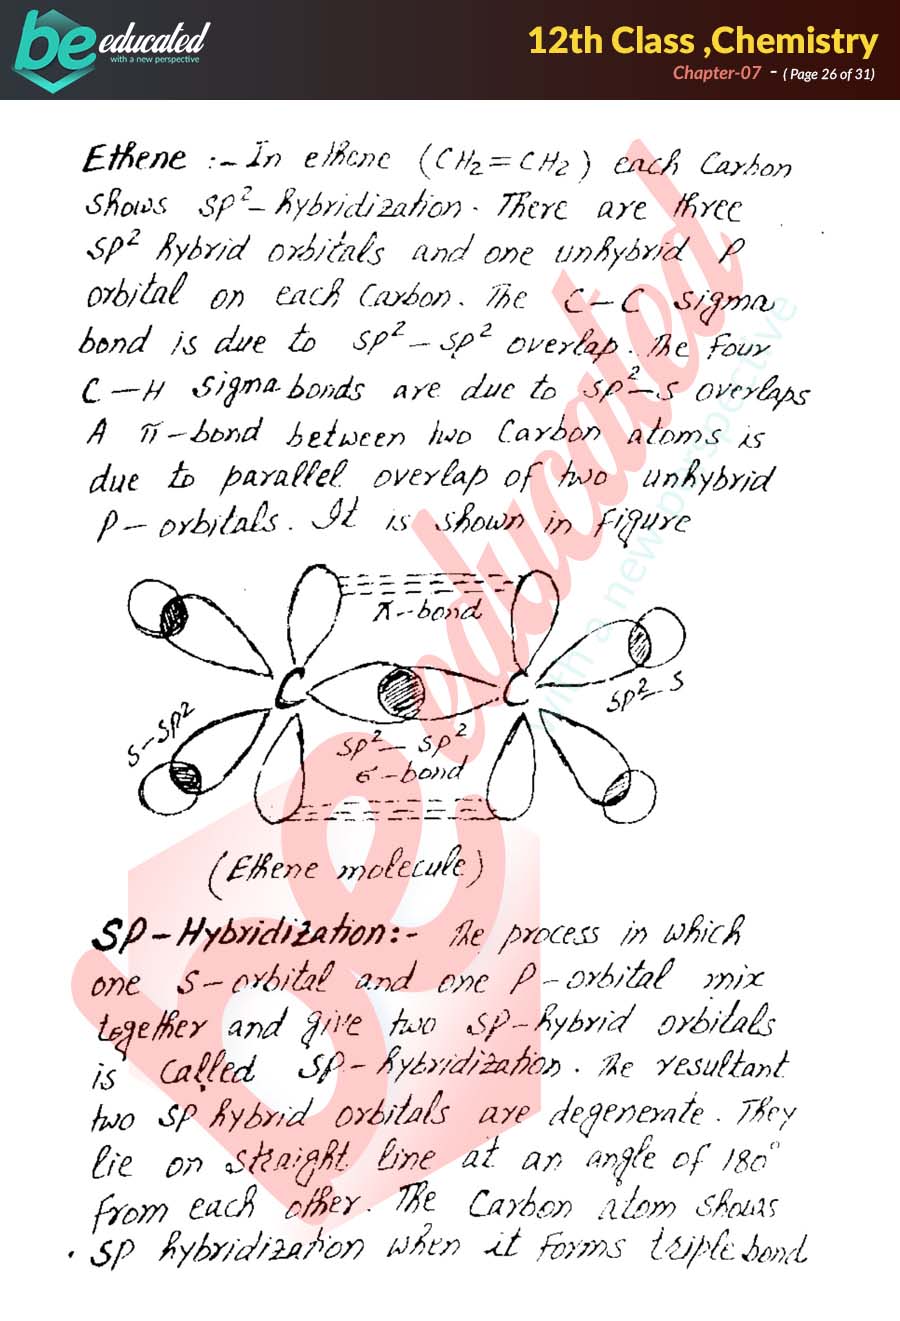 be educated
with a new perspective
12th Class ,Chemistry
Chapter-07 - ( Page 26 of 31)
Ethene :- In ethene (CH2=CH2) each Carbon
shows SP²-hybridization. There are three
SP² hybrid orbitals and one unhybrid P
orbital on each Carbon. The C-C sigma
bond is due to SP²-SP² overlap. The Four
C-H sigma bonds are due to SP²-S overlaps
A π-bond between two Carbon atoms is
due to parallel overlap of two unhybrid
P-orbitals. It is shown in Figure
π-bond
C
C
S-SP²
SP²-S
SP²-SP²
σ-bond
(Ethene molecule)
SP-Hybridization:- The process in which
one S-orbital and one P-orbital mix
together and give two SP-hybrid orbitals
is Called SP-hybridization. The resultant
two SP hybrid orbitals are degenerate. They
lie on straight line at an angle of 180°
From each other. The Carbon atom shows
SP hybridization when it Forms triple bond
be educated
with a new perspective